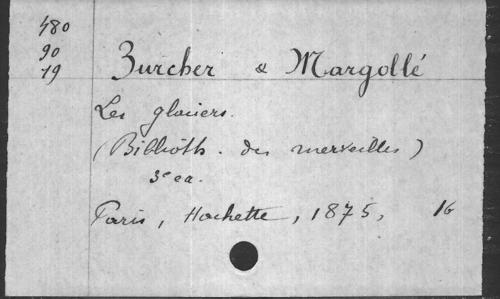 480
90
19
Zurcher & Margollé
Les glaciers.
(Biblioth. des merveilles)
3e ed.
Paris, Hachette, 1875, 16